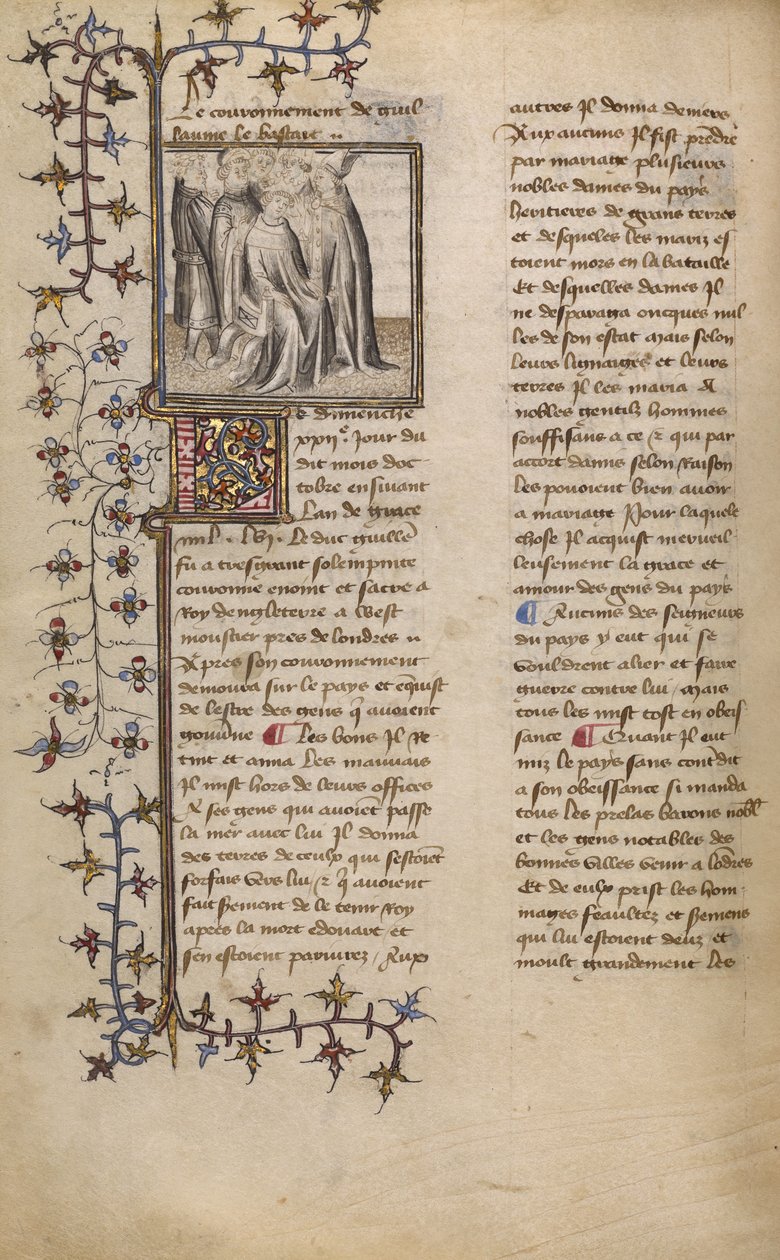 Le couronnement de guil
laume le bastart
Le dimenche
xxii.e Jour du
dit mois doc
tobre ensivant
Lan de grace
mil. lxvi. Le duc guille
fu a tresgrant solempnite
couronne enoint et sacre a
Roy dengleterre a West
moustier pres de londres
Apres son couronnement
demoura sur le pays et equist
de lestre des gens q avoient
gouverne ¶ Les bons Il re
tint et ama Les mauvais
Il mist hors de leurs offices
A ses gens qui avoiet passe
la mer avec lui Il donna
des terres de ceulx qui sestoiet
forfais vers lui / et q avoient
fait serement de le tenir Roy
apres la mort edouart et
sen estoient pariurez / Aux
autres Il donna deniers
Aux aucuns Il fist prendre
par mariage plusieurs
nobles dames du pays
heritieres de grans terres
et desqueles les mariz es
toient mors en la bataille
Et desquelles dames Il
ne desparaga oncques nul
les de son estat mais selon
leurs lignaiges et leurs
terres Il les maria A
nobles gentilz hommes
souffisans a ce et qui par
accort damis selon Raison
les pouoient bien avoir
a mariage Pour laquele
chose Il acquist merveil
leusement la grace et
amour des gens du pays
¶ Aucuns des seigneurs
du pays y eut qui se
vouldrent alier et faire
guerre contre lui / mais
tous les mist tost en obeis
sance ¶ Quant Il eut
mis le pays sans contdit
a son obeissance si manda
tous les prelas barons nobl
et les gens notables des
bonnes villes venir a lodres
Et de eulx prist les hom
mages feaultez et seremens
qui lui estoient deuz et
moult grandement les